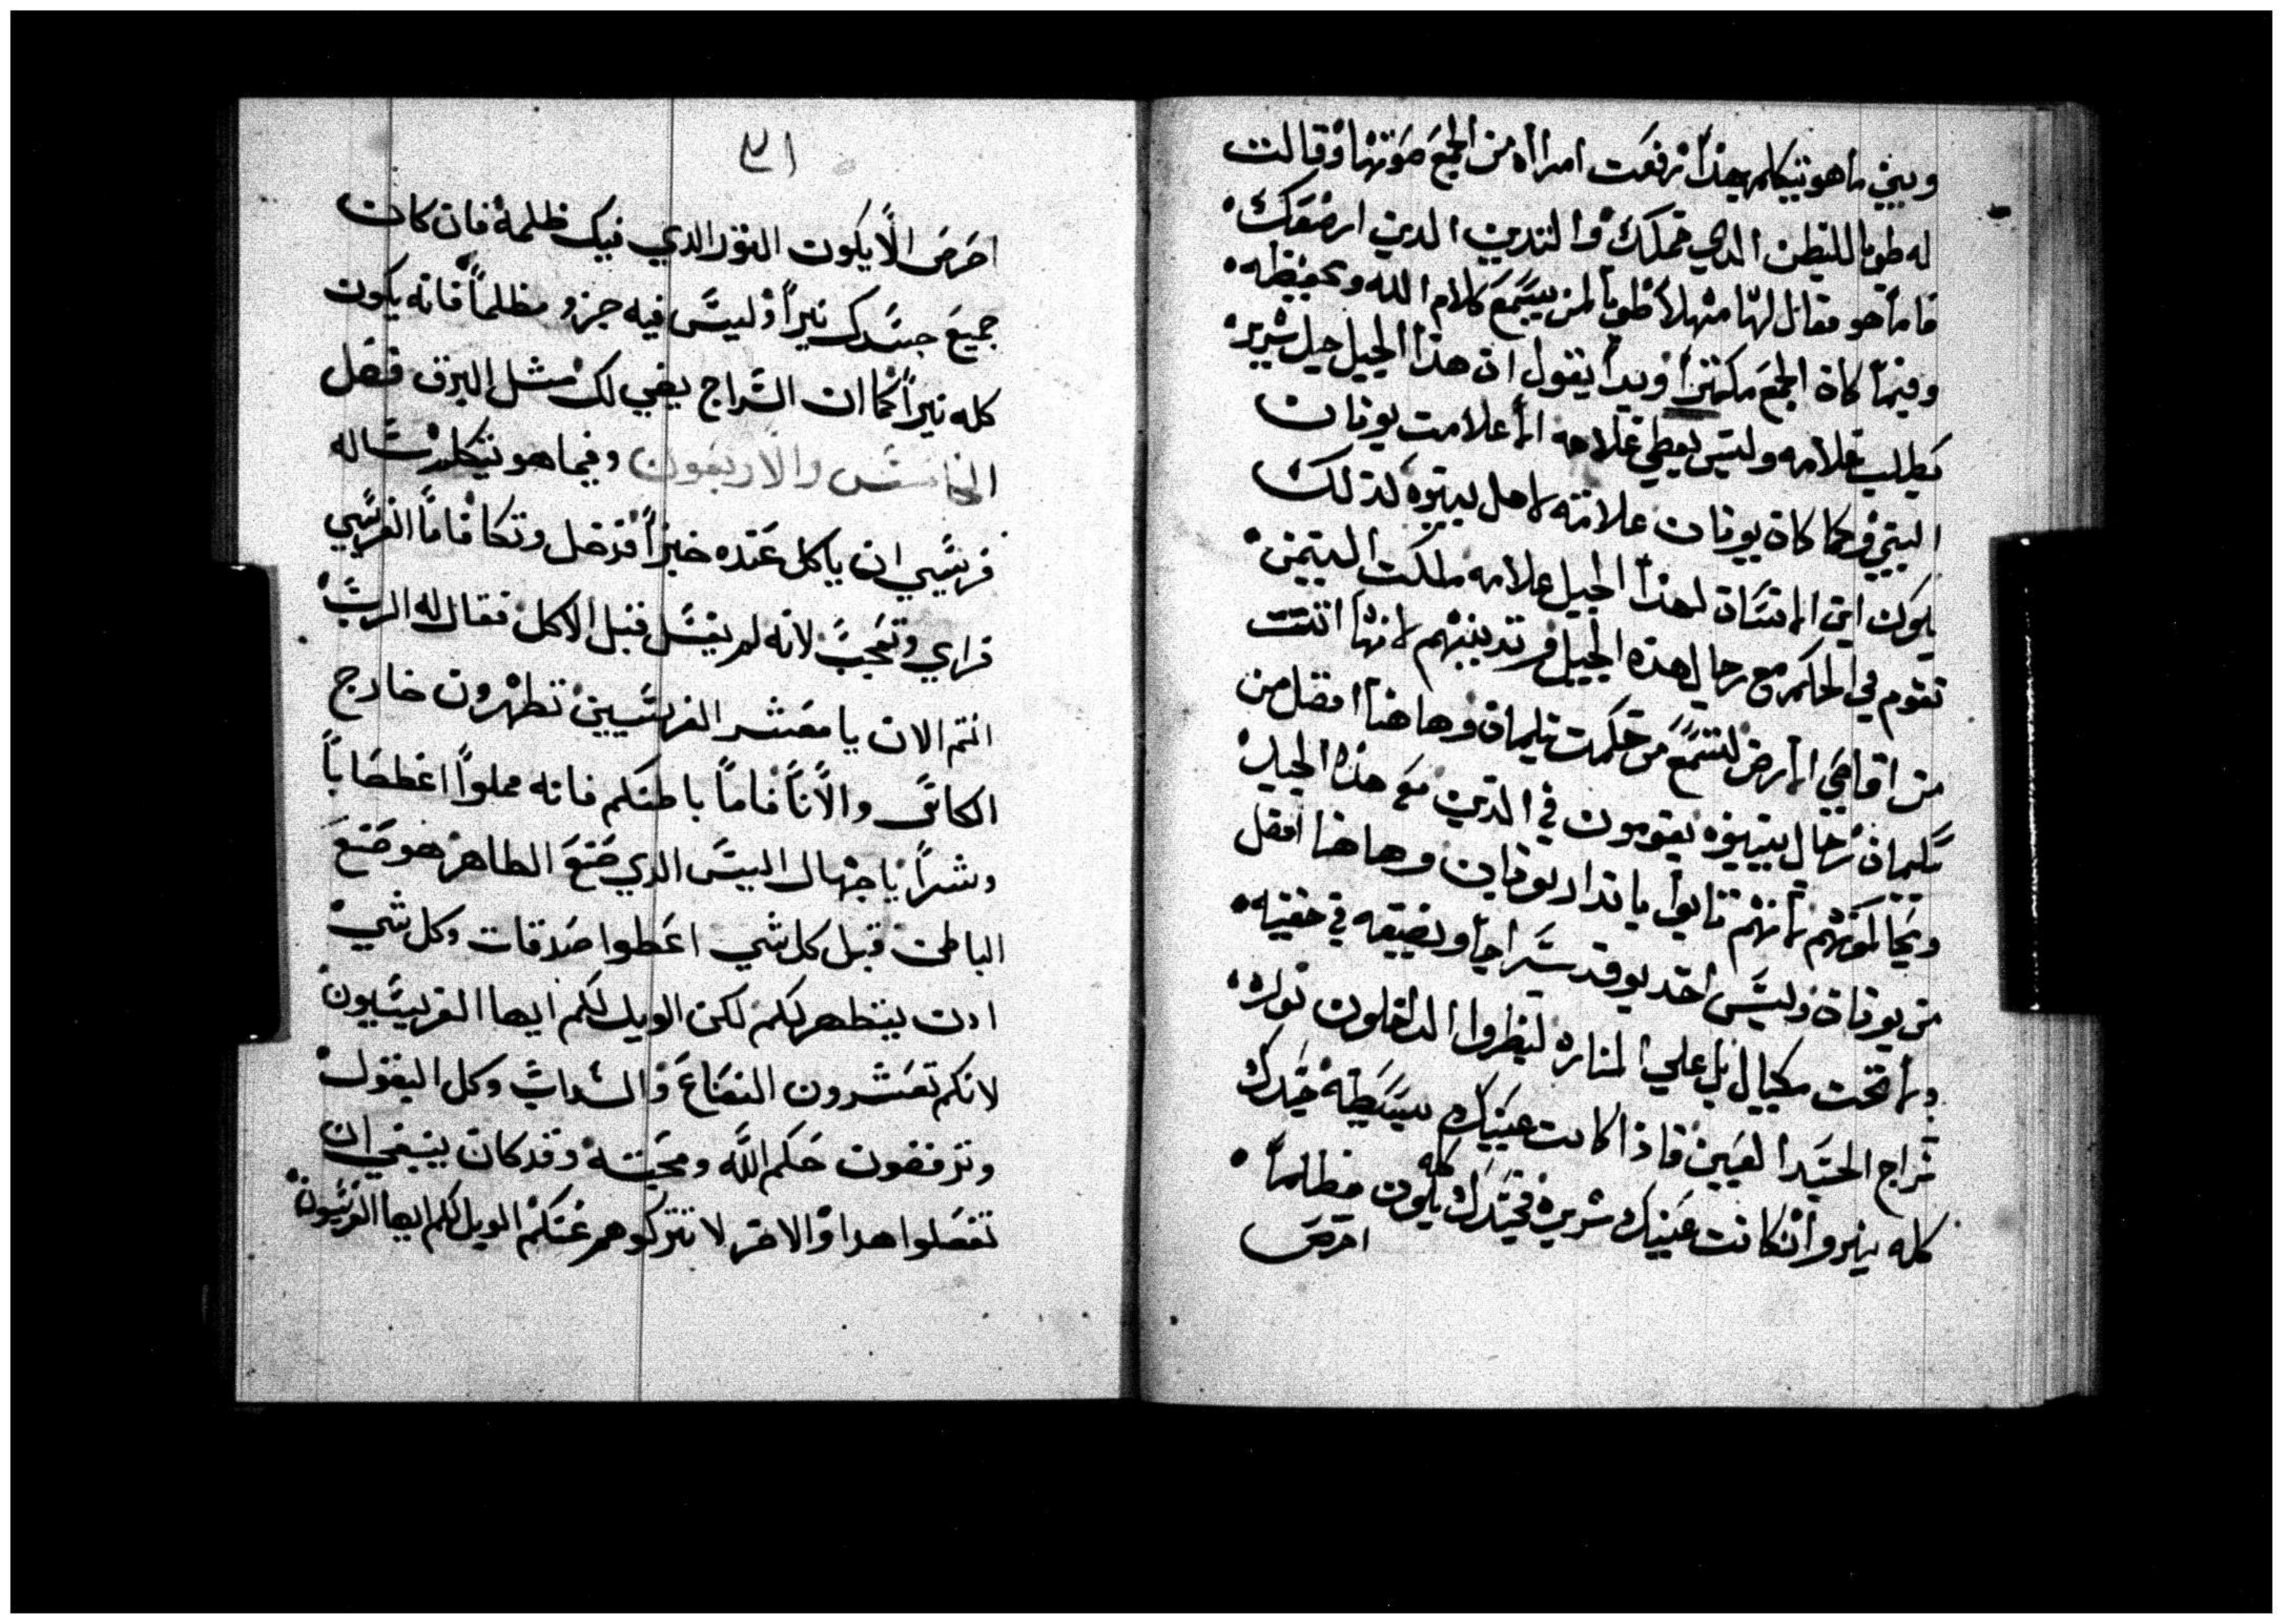 وبين ما هو يتكلم بهذا رفعت امرااه من الجمع صوتها وقالت
له طوبا للبطن الدي حملك والتديين الدين ارضعك
فاما هو فقال لها مهلا طوبا لمن يسمع كلام الله ويحفيظه
وفيما كان الجمع مكتنزا وبدا يقول ان هذا الجيل جيل شرير
يطلب علامه وليس يعطي علامه الا علامت يونان
النبي فكما كان يونان علامته لاهل نينوه كذلك
يكون ابن الانسان لهذا الجيل علامه ملكت التيمن
تقوم في الحكم مع رجال هذه الجيل وتدينهم لانها اتت
من اقاصي الارض لتسمع من حكمت سليمان وهاهنا افضل من
سليمان رجال نينيوه يقومون في الدين مع هذه الجيل
ويحاكمونهم لانهم تابوا باندار يونان وهاهنا افضل
من يونان وليس احد يوقد سراجا ويضيعه في خفيه
ولا تحت مكيال بل علي المناره لينظروا الداخلون نوره
سراج الجسد العين فاذا كانت عينك بسيطه جسدك
كله نير وان كانت عينك شريره فجسدك كله يكون مظلما
احرص
٣١
احرص الا يكون النور الدي فيك ظلمه فان كان
جميع جسدك نيرا وليس فيه جزو مظلما فانه يكون
كله نيرا كما ان السراج يضي لك مثل البرق فصل
الخامس والاربعون وفيما هو يتكلم ساله
فريسي ان ياكل عنده خبزا فدخل وتكا فاما الفريسي
فراي وتعجب لانه لم يغسل قبل الاكل فقال له الرب
انتم الان يا معشر الفريسيين تطهرون خارج
الكاس والانا فاما باطنكم فانه مملوا اغطصابا
وشرا يا جهال اليس الدي صنع الطاهر هو صنع
الباطن قبل كل شي اعطوا صدقات وكل شي
ادن يتطهر لكم لكن الويل لكم ايها الفريسيون
لانكم تعشرون النعناع والسداب وكل البقول
وترفضون حكم الله ومحبته وقد كان ينبغي ان
تفعلوا هدا والاخر لا تتركوهم عنكم الويل لكم ايها الفريسيون